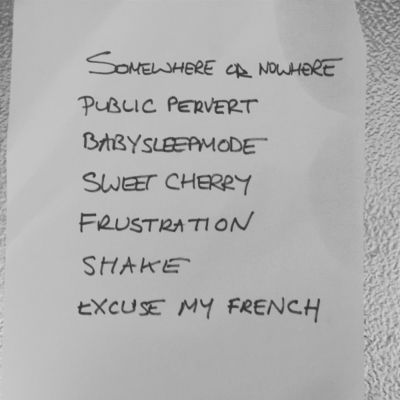 SOMEWHERE OR NOWHERE
PUBLIC PERVERT
BABYSLEEPMODE
SWEET CHERRY
FRUSTRATION
SHAKE
EXCUSE MY FRENCH